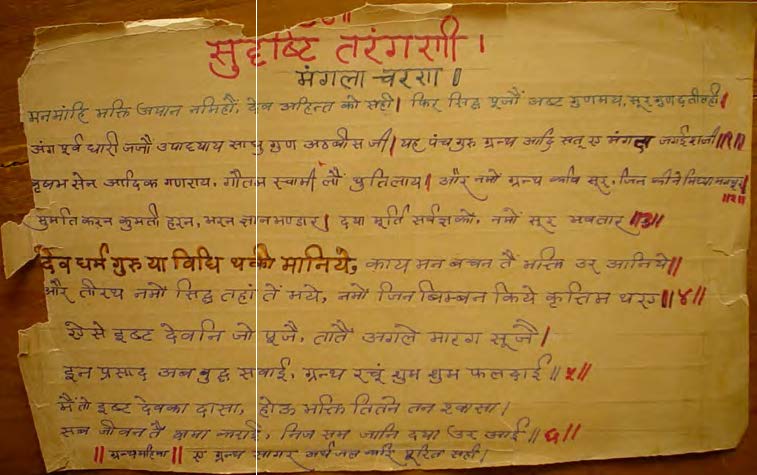 सुदृष्टि तरंगणी।
मंगला चरण॥
मनमांहि भक्ति अपान नमिहौं, देव अरिहन्त को सही। फिर सिद्ध पूजौं अष्ट गुणमय, सूर गुण
अंग पूर्व धारी जजौ उपाध्याय साधु गुण अठबीस जी। यह पंच गुरु ग्रन्थ आदि सत् ए मंगल
वृषभ सेन आदिक गणराय, गौतम स्वामी लौं थुति लाय। और नमों ग्रन्थ कवि सूर, जिन कीने मिथ्या
॥२॥
सुमति करन कुमती हरन, भरन ज्ञान भण्डार। दया मूर्ति सर्वज्ञ को, नमों सूर भवतार॥३॥
देव धर्म गुरु या विधि थकी मानिये, काय मन बचन तैं भक्ति उर आनिये॥
और तीरथ नमों सिद्ध तहां तें भये, नमों जिन बिम्बन किये कृत्तिम थरए॥४॥
ऐसे इष्ट देवनि जो पूजै, तातैं अगले मारग सूजै।
इन प्रसाद अब बुद्ध सवाई, ग्रन्थ रचूं शुभ शुभ फलदाई॥५॥
मैं तो इष्ट देवका दासा, होऊ भक्ति तितने तन श्वासा।
सब जीवन तै क्षमा कराई, निज सम जानि दया उर आई॥६॥
॥ग्रन्थमहिमा॥ ए ग्रन्थ सागर अर्थ जल करि पूरित सही।